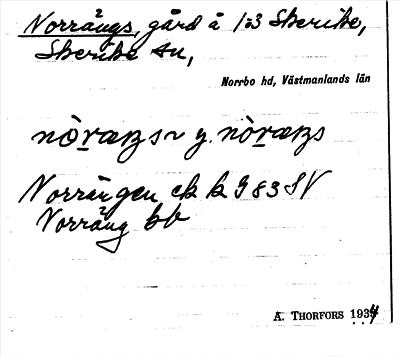 Norrängs, gård å 1:3 Skerike,
Skerike sn,
Norrbo hd, Västmanlands län
Norrängen ek k 983 SV
Norräng bb
A. THORFORS 1934